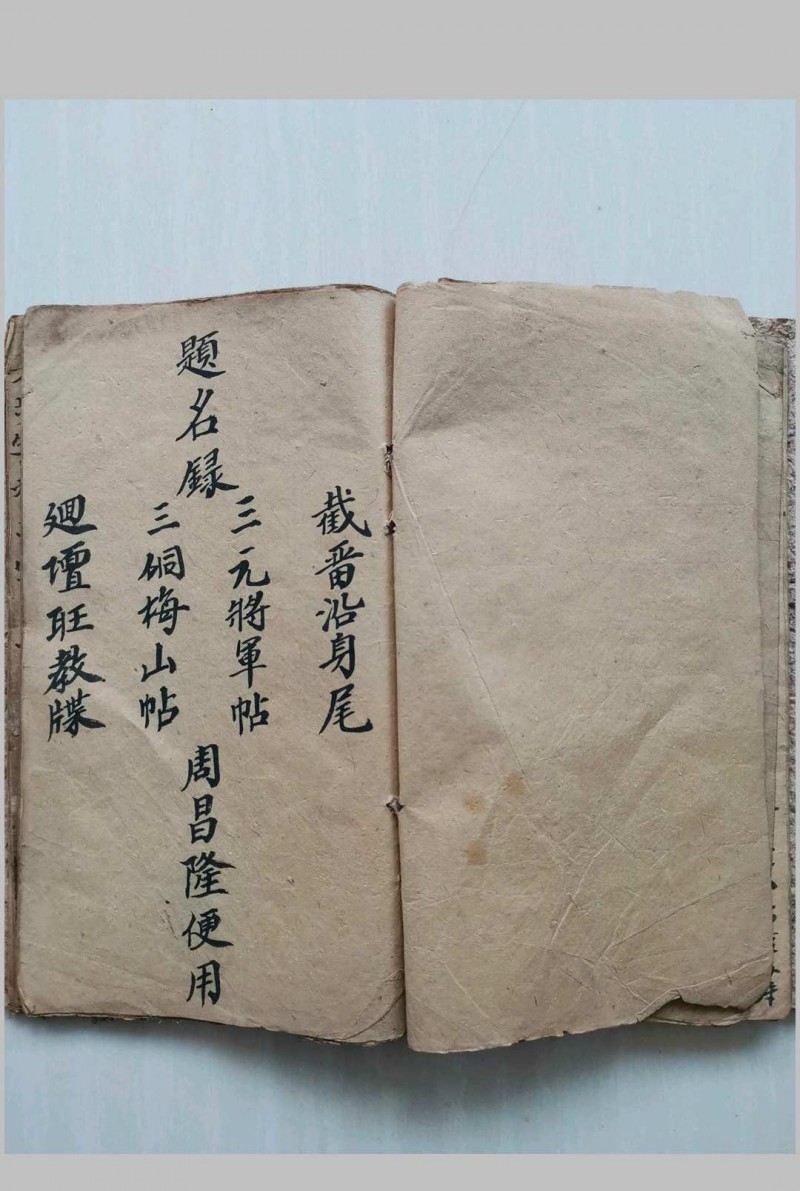 題名録
截番沿身尾
三元將軍帖
三硐梅山帖
廻壇旺教牒
周昌隆便用